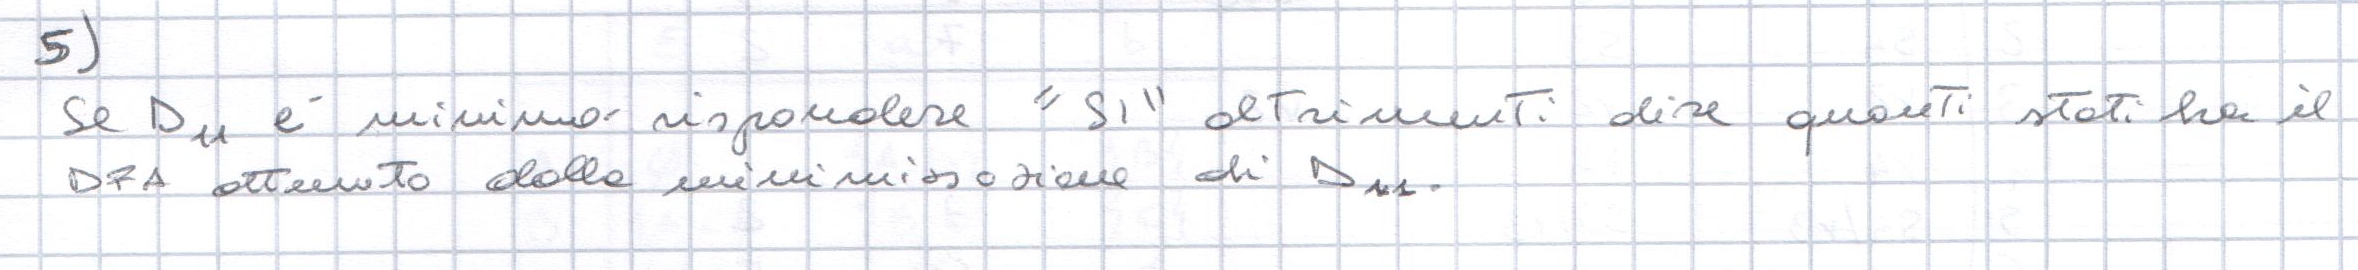 5)
Se D₁₁ è minimo rispondere "SI" altrimenti dire quanti stati ha il
DFA ottenuto dalla minimizzazione di D₁₁.